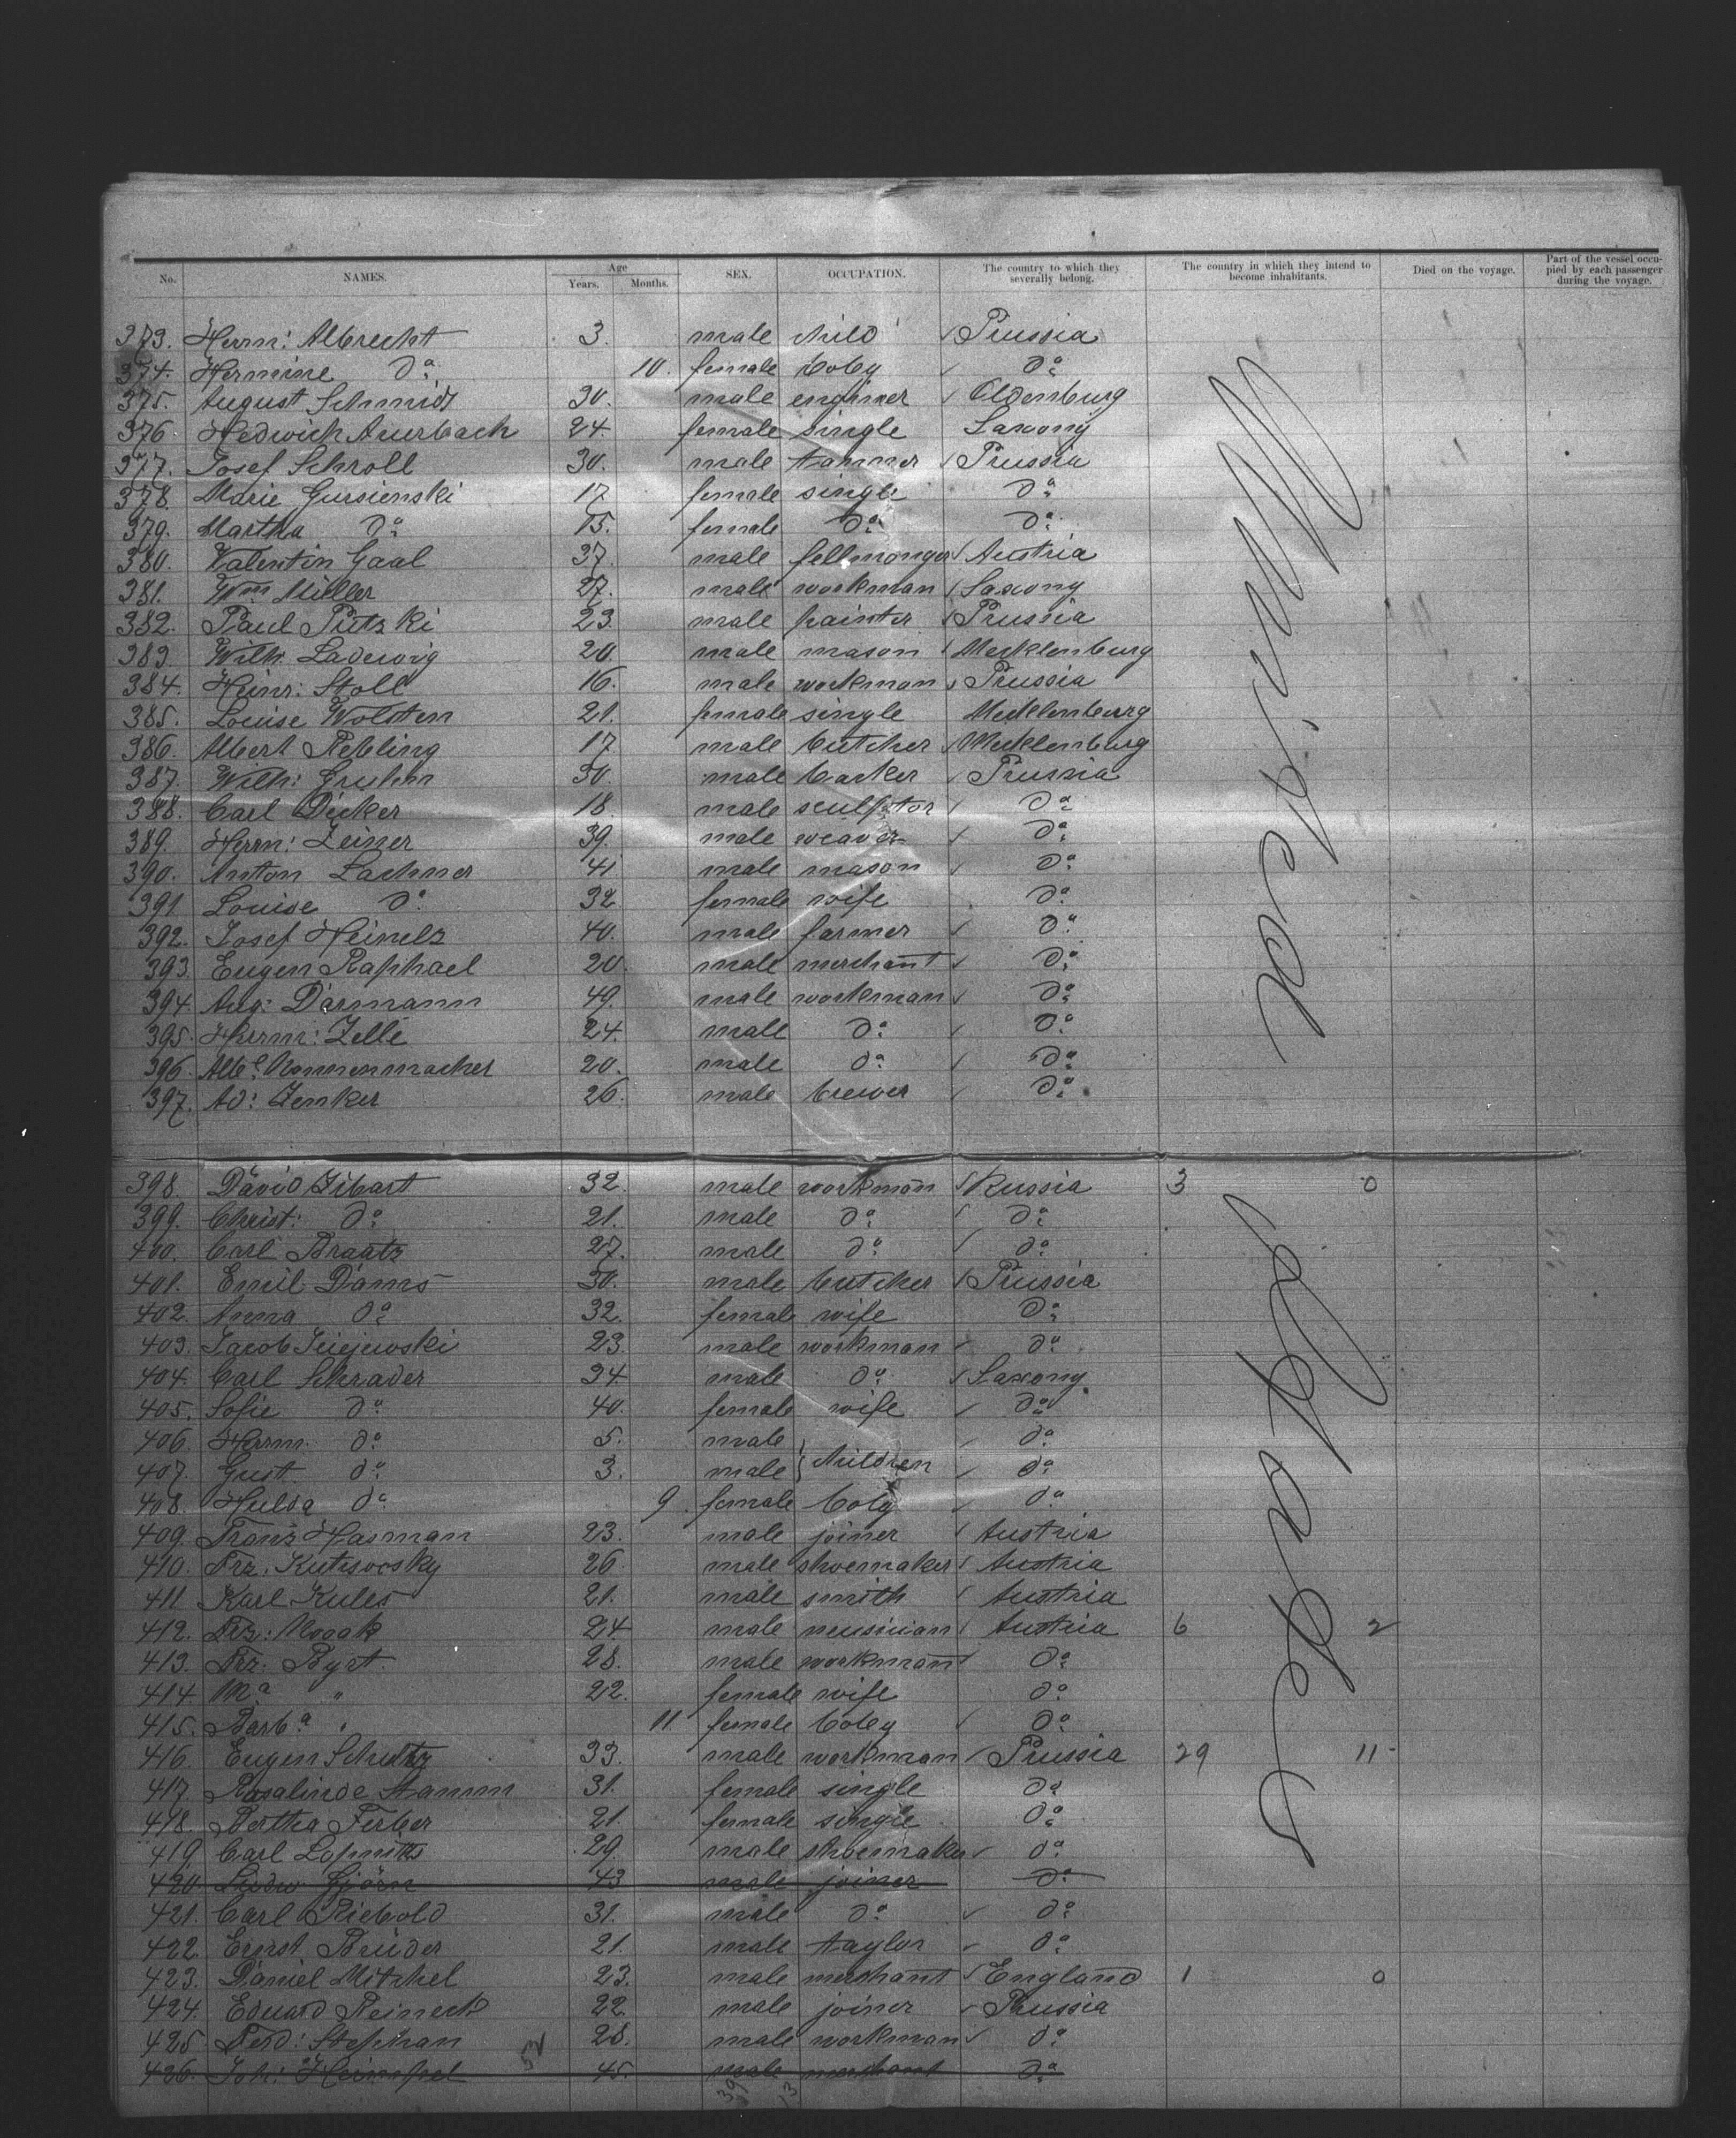 No. NAMES. Age Years. Months. SEX. OCCUPATION. The country to which they severally belong. The country in which they intend to become inhabitants. Died on the voyage. Part of the vessel occupied by each passenger during the voyage.
373. Herrm: Albrecht 3. male child Prussia
374. Hermine do 10. female baby do
375. August Schmidt 30. male enginer Oldenburg
376 Hedwich Auerbach 24. female single Saxony
377. Josef Schroll 30. male tanner Prussia
378. Marie Gursienski 17 female single do
379. Martha do 15. female do do
380. Valentin Gaal 37. male fellmonger Austria
381. Wm Müller 27. male workman Saxony
382. Paul Putzki 23. male painter Prussia
383. Wilh. Ladewig 20 male mason Mecklenburg
384. Heinr: Stoll 16. male workman Prussia
385. Louise Wolsten 21. female single Mecklenburg
386. Albert Rebling 17 male butcher Mecklenburg
387. Wilh: Gruhn 30. male Prussia
388. Carl Dicker 18 male sculptor do
389. Herrm: Zeiner 39. male weaver do
390. Anton Lachner 41 male mason do
391 Louise do 32 female wife do
392. Josef Heinelz 40. male farmer do
393. Eugen Raphael 20. male merchant do
394. Aug: Darmann 49. male workman do
395. Herrm: Zelle 24. male do do
396. Albt. Nonnenmacher 20. male do do
397. Ad: Zenker 26. male brewer do
398. David Zibart 32. male workman Russia 3 0
399. Christ: do 21. male do do
400. Carl Braatz 27. male do do
401. Emil Dams 30. male butcher Prussia
402. Anna do 32. female wife do
403. Jacob 23. male workman do
404. Carl Schrader 34 male do Saxony
405. Sofie do 40. female wife do
406. Herrm. do 5. male children do
407. Gust do 3. male do
408. Hulda do 9. female baby do
409. Franz Hasman 23. male joiner Austria
410. Frz. Kutsocsky 26 male shoemaker Austria
411. Karl Kules 21. male smith Austria
412. Frz: Novak 24 male musician Austria 6 2
413. Frz: Byrt. 28. male workman do
414. Ma " 22. female wife do
415. Barba " 11. female baby do
416. Eugen Schultz 33. male workman Prussia 29 11
417. Rosalinde Stamm 31. female single do
418. Bertha Ferber 21. female single do
419. Carl 29. male shoemaker do
420. Ludw. Björn 43 male joiner do
421. Carl Riebold 31. male do do
422. Ernst Brüder 21. male taylor do
423. Daniel Mitchel 23. male merchant England 1 0
424. Eduard Reineck 22. male joiner Prussia
425. Ferd: Stephan 28. male workman do
426. Joh: Heimpel 45. male merchant do
52 39 13